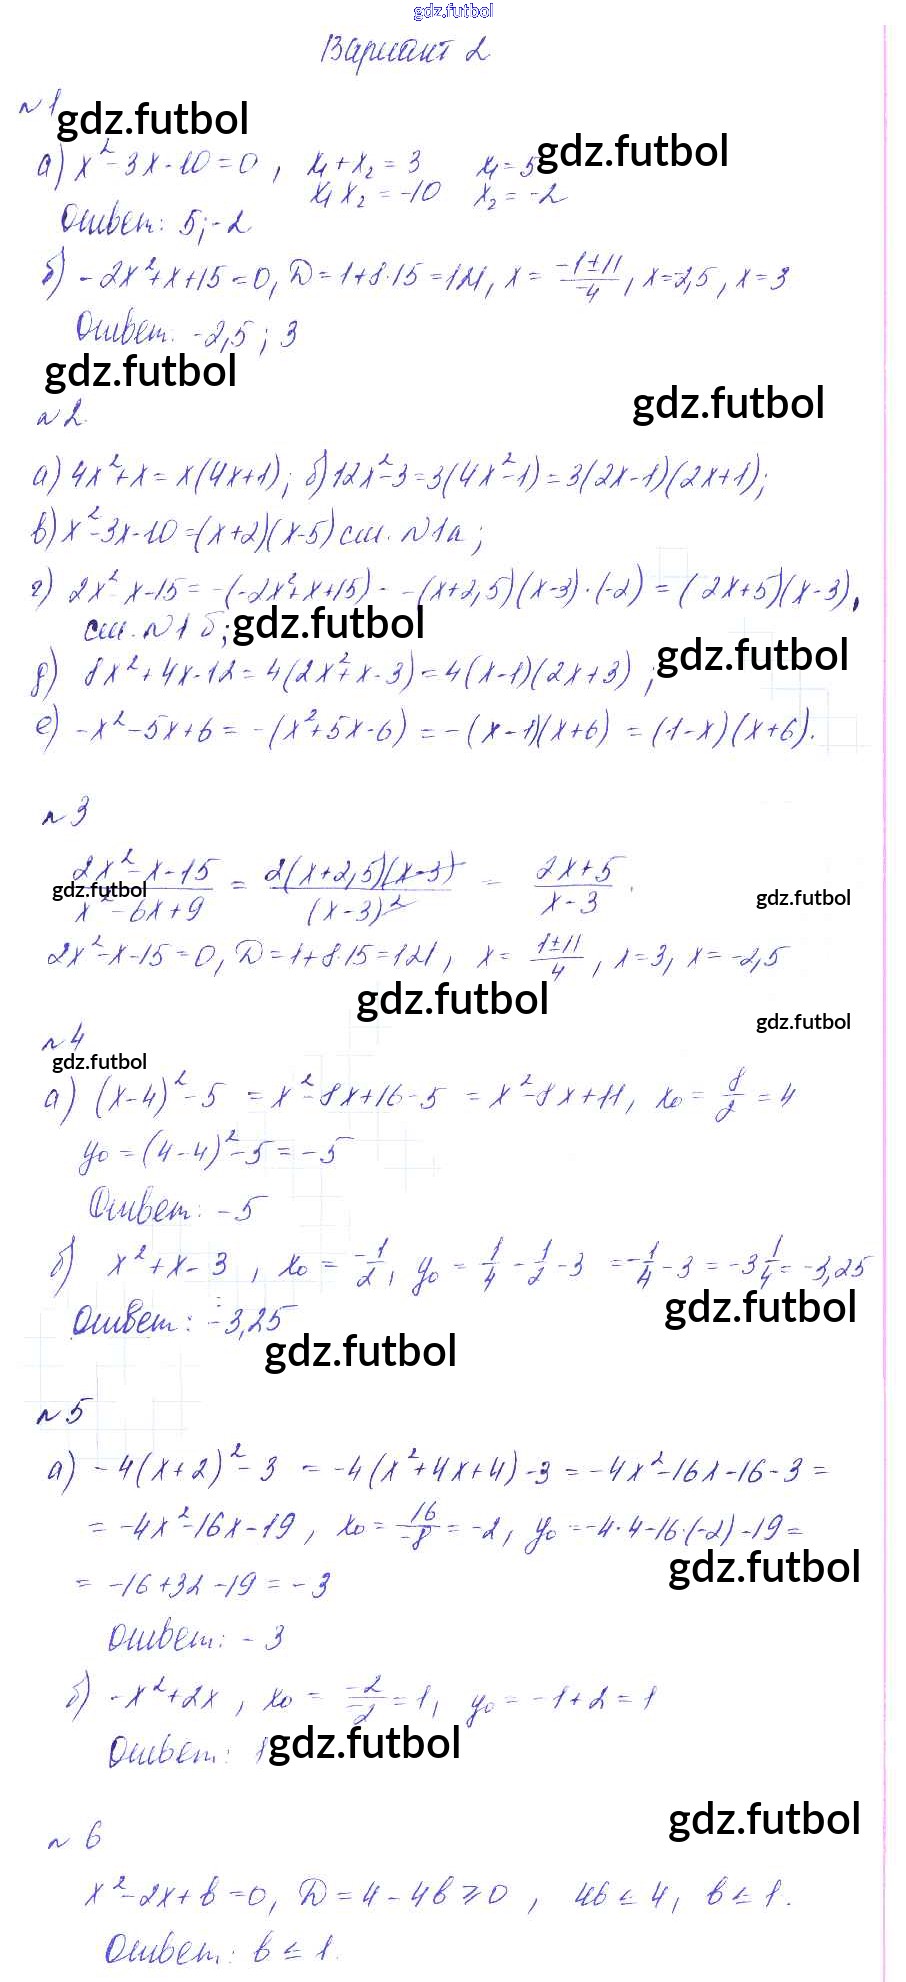 gdz.futbol
Вариант 2
№1
gdz.futbol
а) x² - 3x - 10 = 0, x₁ + x₂ = 3 x₁ = 5
gdz.futbol
x₁ x₂ = -10 x₂ = -2
Ответ: 5; -2
б) -2x² + x + 15 = 0, D = 1 + 8·15 = 121, x = (-1 ± 11)/(-4), x = -2,5, x = 3
Ответ: -2,5; 3
gdz.futbol
gdz.futbol
№2.
а) 4x² + x = x(4x+1); б) 12x² - 3 = 3(4x² - 1) = 3(2x-1)(2x+1);
в) x² - 3x - 10 = (x+2)(x-5) см. №1а;
г) 2x² - x - 15 = -(-2x² + x + 15) = -(x+2,5)(x-3)·(-2) = (2x+5)(x-3),
см. №1 б;
gdz.futbol
gdz.futbol
д) 8x² + 4x - 12 = 4(2x² + x - 3) = 4(x-1)(2x+3);
е) -x² - 5x + 6 = -(x² + 5x - 6) = -(x-1)(x+6) = (1-x)(x+6).
№3
(2x² - x - 15)/(x² - 6x + 9) = 2(x+2,5)(x-3)/(x-3)² = (2x+5)/(x-3).
gdz.futbol
gdz.futbol
2x² - x - 15 = 0, D = 1 + 8·15 = 121, x = (1 ± 11)/4, x = 3, x = -2,5
gdz.futbol
gdz.futbol
№4
gdz.futbol
а) (x-4)² - 5 = x² - 8x + 16 - 5 = x² - 8x + 11, x₀ = 8/2 = 4
y₀ = (4-4)² - 5 = -5
Ответ: -5
б) x² + x - 3, x₀ = -1/2, y₀ = 1/4 - 1/2 - 3 = -1/4 - 3 = -3 1/4 = -3,25
gdz.futbol
Ответ: -3,25
gdz.futbol
№5
а) -4(x+2)² - 3 = -4(x² + 4x + 4) - 3 = -4x² - 16x - 16 - 3 =
= -4x² - 16x - 19, x₀ = 16/-8 = -2, y₀ = -4·4 - 16·(-2) - 19 =
gdz.futbol
= -16 + 32 - 19 = -3
Ответ: -3
б) -x² + 2x, x₀ = -2/-2 = 1, y₀ = -1 + 2 = 1
Ответ: 1
gdz.futbol
gdz.futbol
№6
x² - 2x + b = 0, D = 4 - 4b ≥ 0, 4b ≤ 4, b ≤ 1.
Ответ: b ≤ 1.